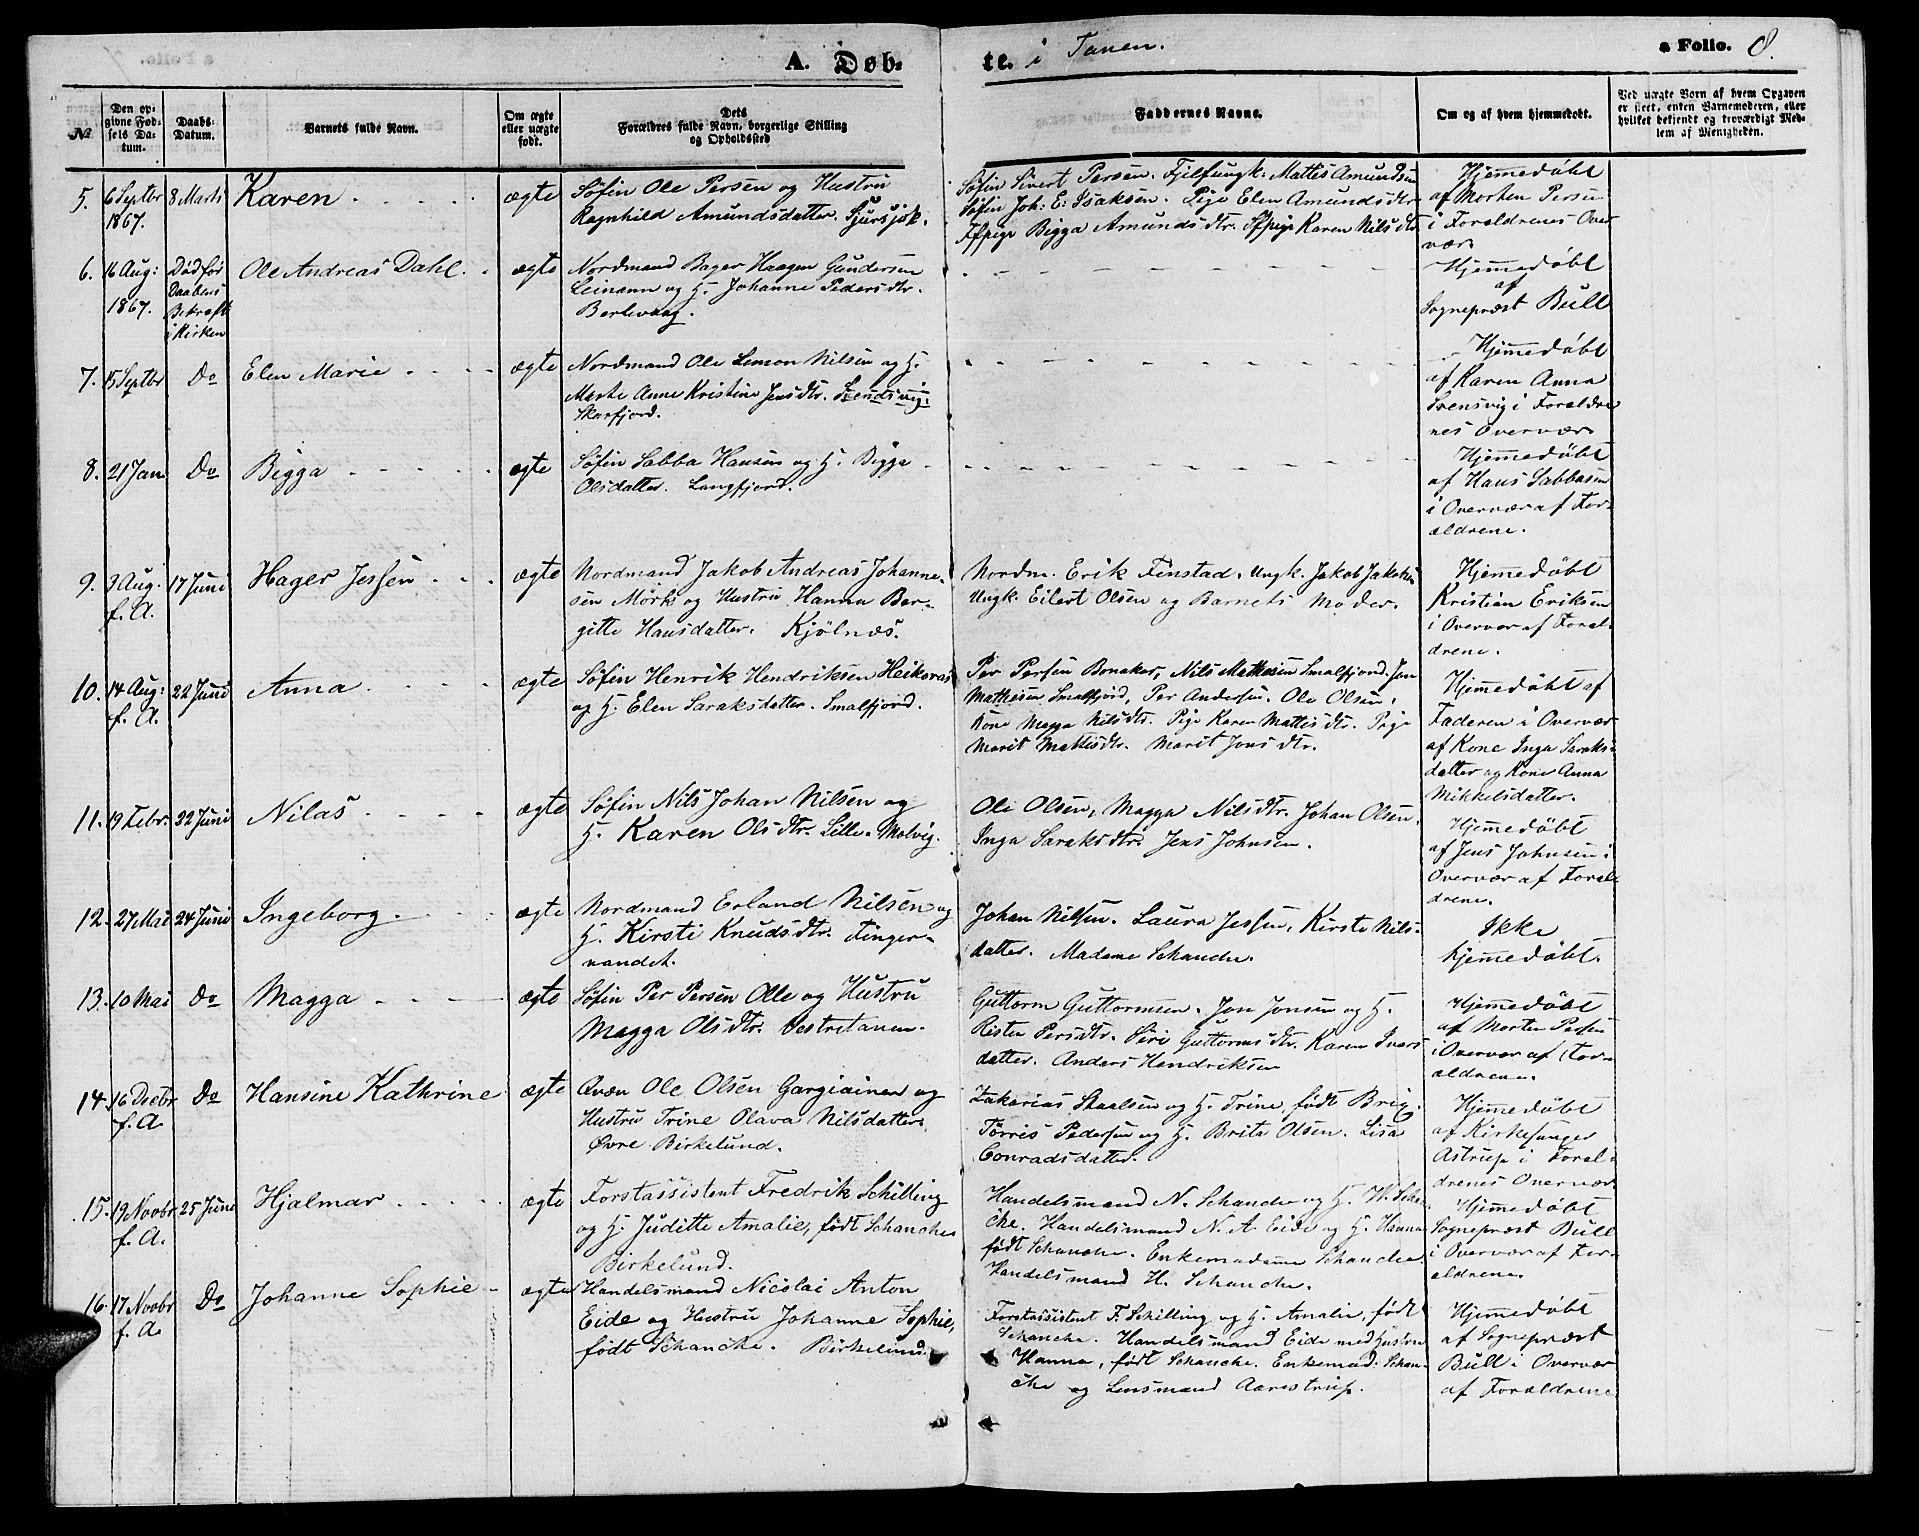 A. Døb-
te. i Tanen.
a Folio. 8.
№
Den op-
givne Fød-
sels Da-
tum.
Daabs-
Datum.
Barnets fulde Navn.
Om ægte
eller uægte
født.
Dets
Forældres fulde Navn, borgerlige Stilling
og Opholdssted
Faddernes Navne.
Om og af hvem hjemmedøbt.
Ved uægte Børn af hvem Opgaven
er skeet, enten Barnemoderen, eller
hvilket bekjendt og troværdigt Med-
lem af Menigheden.
5. 6 Septbr 1867. 8 Marts Karen ægte
Søfin Ole Persen og Hustru
Ragnhild Amundsdatter.
Søfin Sivert Persen. Mattis Amundsen
Søfin Joh: E: Isaksen. Pige Elen Amundsdtr.
Bigga Amundsdtr. Karen Nilsdtr.
Hjemmedøbt
af Morten Persen
i Forældrenes Over-
vær.
6. 16 Aug: 1867.
Død før
Daabens
Bekræft
i Kirken
Ole Andreas Dahl. ægte
Nordmand Bager Haagen Gundersen
Leinann og H. Johanne Pedersdtr.
Berlevaag.
Hjemmedøbt
af
Sognepræst Bull
7. 15 Septbr Do Elen Marie ægte
Nordmand Ole Simon Nilsen og H.
Marte Anne Kristine Jensdtr.
Skarfjord.
Hjemmedøbt
af Karen Anna
Svensvig i Forældre
nes Overvær
8. 21 Jan Do Bigga ægte
Søfin Sabba Hansen og H. Bigga
Olsdatter. Langfjord.
Hjemmedøbt
af Hans Sabbasen
i Overvær af For-
ældrene.
9. 9 Aug. f. A. 17 Juni Hager Jessen ægte
Nordmand Jakob Andreas Johanne-
sen Mørk og Hustru Hanna Ber-
gitte Hansdatter. Kjølnæs.
Nordm. Erik Finstad. Ungk. Jakob Jakobs
Ungk. Eilert Olsen og Barnets Moder.
Hjemmedøbt
Kristian Eriksen
i Overvær af Foræl-
drene.
10. 14 Aug: f. A. 22 Juni Anna ægte
Søfin Henrik Hendriksen Heikeras
og H. Elen Saraksdatter. Smalfjord.
Per Persen Bonakas, Nils Mathisen Smalfjord. Jon
Mathisen Smalfjord, Per Andersen. Ole Olsen,
Kone Magga Nilsdtr. Pige Karen Mattisdtr. Pige
Marit Mattisdtr. Marit Jonsdtr.
Hjemmedøbt af
Faderen i Overvær
af Kone Inga Saraks-
datter og Kone Anna
Mikkelsdatter.
11. 19 Febr. 22 Juni Nilas ægte
Søfin Nils Johan Nilsen og
H. Karen Olsdtr. Lille-Molvig.
Ole Olsen, Magga Nilsdtr. Johan Olsen.
Inga Saraksdtr. Jens Johnsen.
Hjemmedøbt
af Jens Johnsen i
Overvær af Foræl
drene.
12. 27 Mai 24 Juni Ingeborg. ægte
Nordmand Erland Nilsen og
H. Kirsti Knudsdtr. Finger-
vandet.
Johan Nilsen. Laura Jessen, Kirste Nils-
datter. Madame Schanche.
Ikke
hjemmedøbt.
13. 10 Mai Do Magga ægte
Søfin Per Persen Olle og Hustru
Magga Olsdtr. Vestretanen.
Guttorm Guttormsen. Jon Jonsen og H.
Risten Persdtr. Siri Guttormsdtr. Karen Ivers
datter. Anders Hendriksen
Hjemmedøbt
af Morten Persen
i Overvær af For-
ældrene.
14. 16 Decbr f. A. Do Hansine Kathrine ægte
Qvæn Ole Olsen Gargiainen og
Hustru Trine Olava Nilsdatter.
Øvre Birkelund.
Zakarias Skaalsen og H. Trine, født Brix.
Tørris Pedersen og H. Brita Olsen. Lisa
Conradsdatter.
Hjemmedøbt
af Kirkesanger
Astrup i Foræl-
drenes Overvær
15. 19 Novbr f. A. 25 Juni Hjalmar ægte
Forstassistent Fredrik Schilling
og H. Juditte Amalie, født Schanche
Birkelund.
Handelsmand N. Schanche og H. W. Scha-
che. Handelsmand N. A. Eide og H. Hanna
født Schanche. Enkemadame Schanche.
Handelsmand H. Schanche.
Hjemmedøbt
Sognepræst Bull
i Overvær af For-
ældrene.
16. 17 Novbr f. A. Do Johanne Sophie ægte
Handelsmand Nicolai Anton
Eide og Hustru Johanne Sophie,
født Schanche. Birkelund.
Forstassistent F. Schilling og H. Amalie, født
Schanche. Handelsmand Eide med Hustru
Hanna, født Schanche. Enkemad: Schan-
che og Lensmand Aarestrup.
Hjemmedøbt
af Sognepræst
Bull i Overvær
af Forældrene